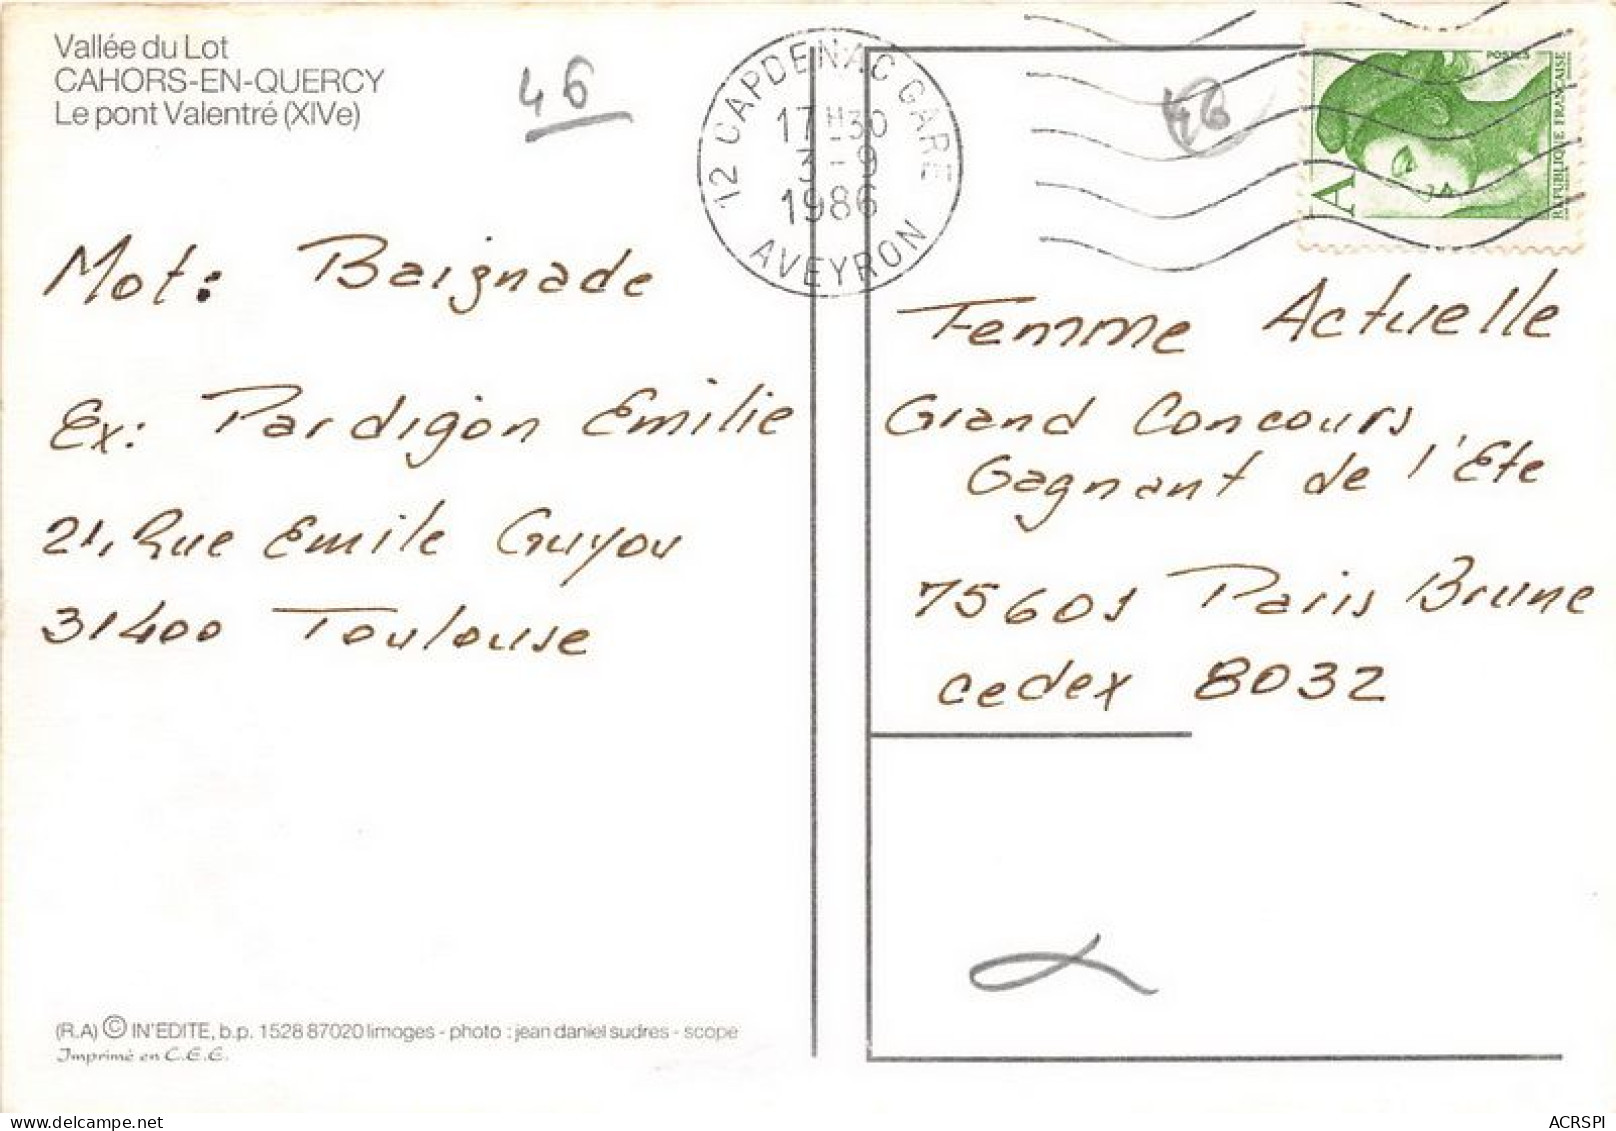 Vallée du Lot
CAHORS-EN-QUERCY
Le pont Valentré (XIVe)
46
12 CAPDENAC GARE
17H30
3-9
1986
AVEYRON
46
POSTES
RÉPUBLIQUE FRANÇAISE
A
Mot: Baignade
Ex: Pardigon Emilie
21, Rue Emile Guyou
31400 Toulouse
Femme Actuelle
Grand Concours
Gagnant de l'Ete
75601 Paris Brune
cedex 8032
(R.A) © IN'EDITE, b.p. 1528 87020 limoges - photo : jean daniel sudres - scope
Imprimé en C.E.E.
ACRSPI